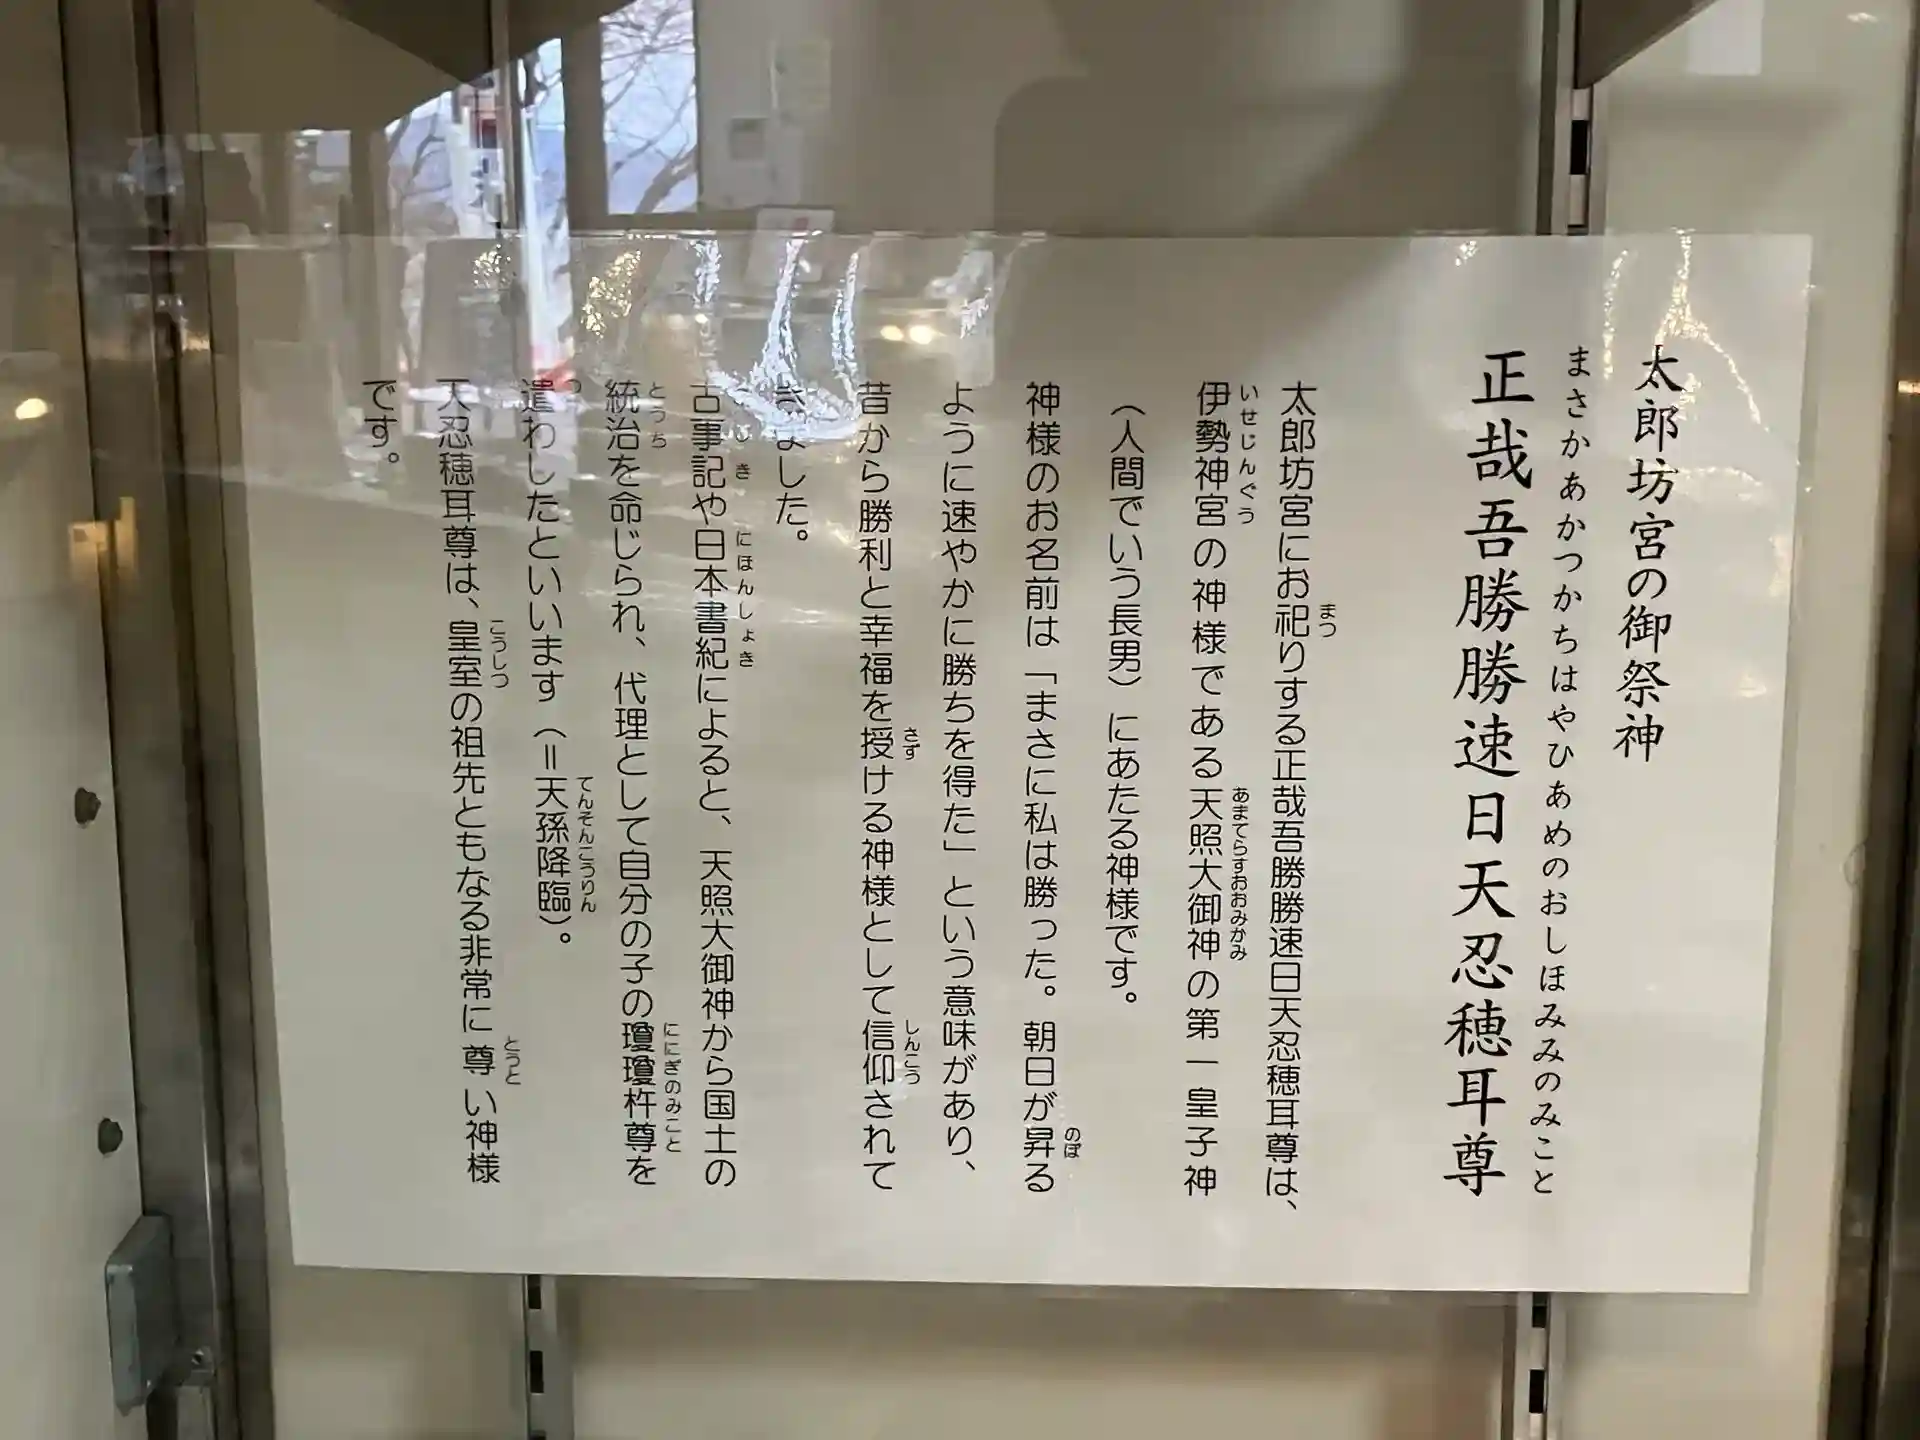 太郎坊宮の御祭神
まさかあかつかちはやひあめのおしほみみのみこと
正哉吾勝勝速日天忍穂耳尊
太郎坊宮にお祀りする正哉吾勝勝速日天忍穂耳尊は、
まつ
伊勢神宮の神様である天照大御神の第一皇子神
いせじんぐう
あまてらすおおみかみ
（人間でいう長男）にあたる神様です。
神様のお名前は「まさに私は勝った。朝日が昇る
のぼ
ように速やかに勝ちを得た」という意味があり、
昔から勝利と幸福を授ける神様として信仰されて
さず
しんこう
きました。
古事記や日本書紀によると、天照大御神から国土の
こじき
にほんしょき
統治を命じられ、代理として自分の子の瓊瓊杵尊を
とうち
ににぎのみこと
遣わしたといいます（＝天孫降臨）。
つ
てんそんこうりん
天忍穂耳尊は、皇室の祖先ともなる非常に尊い神様
こうしつ
とうと
です。